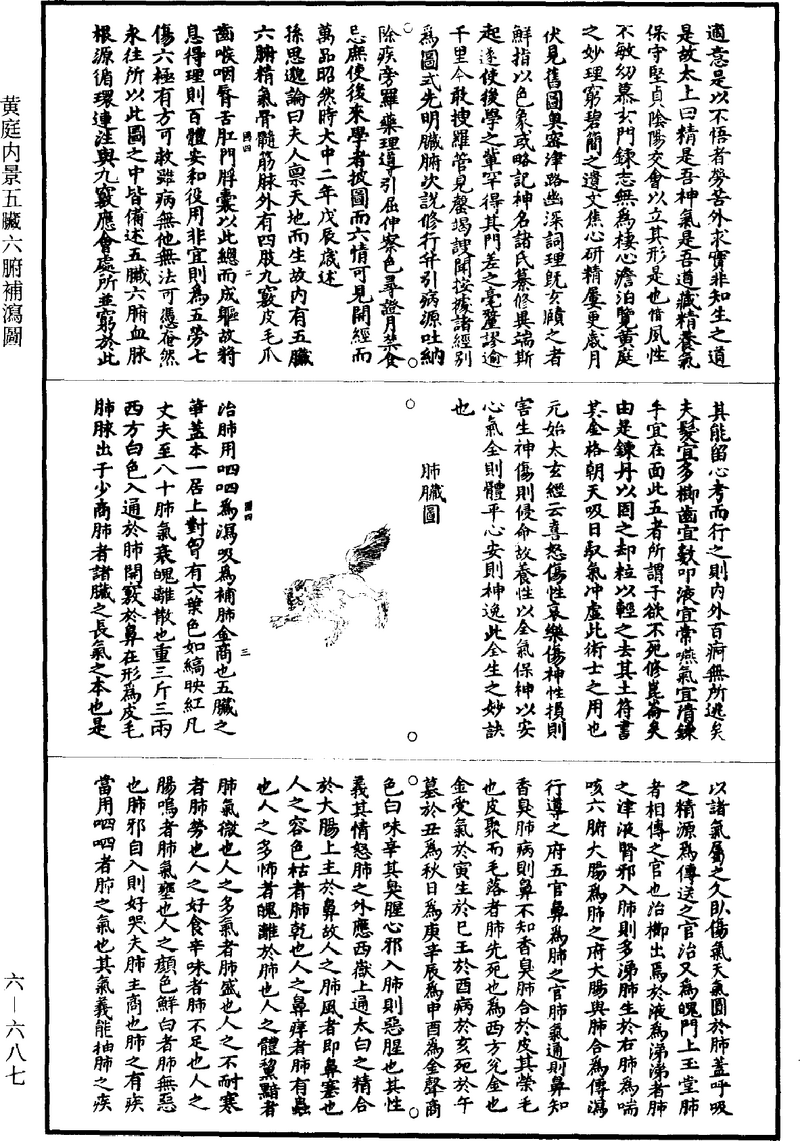 黄庭内景五臟六腑補瀉圖
適意是以不悟者勞苦外求實非知生之道
是故太上曰精是吾神氣是吾道藏精養氣
保守堅貞陰陽交會以立其形是也愔夙性
不敏幼慕玄門鍊志無為棲心澹泊覽黄庭
之妙理窮碧簡之遺文焦心研精屢更歲月
伏見舊圖奥密津路幽深詞理既玄賾之者
鮮指以色象或略記神名諸氏纂修異端斯
起遂使後學之輩罕得其門差之毫釐謬逾
千里今敢搜羅管見罄竭謏聞按據諸經別
為圖式先明臟腑次說修行并引病源吐納
除疾旁羅藥理導引屈伸察色尋證月禁食
忌庶使後來學者披圖而六情可見開經而
萬品昭然時大中二年戊辰歲述
孫思邈論曰夫人禀天地而生故内有五臟
六腑精氣骨髓筋脉外有四肢九竅皮毛爪
齒喉咽脣舌肛門脬囊以此總而成軀故將
息得理則百體安和役用非宜則為五勞七
傷六極有方可救雖病無他無法可憑奄然
永往所以此圖之中皆備述五臟六腑血脉
根源循環連注與九竅應會處所並窮於此
其能留心考而行之則内外百痾無所逃矣
夫髮宜多櫛齒宜數叩液宜常嚥氣宜清鍊
手宜在面此五者所謂子欲不死修崑崙矣
由是鍊丹以固之却粒以輕之去其土符書
其金格朝天吸日馭氣冲虚此術士之用也
元始太玄經云喜怒傷性哀樂傷神性損則
害生神傷則侵命故養性以全氣保神以安
心氣全則體平心安則神逸此全生之妙訣
也
肺臟圖
治肺用呬呬為瀉吸為補肺金商也五臟之
華蓋本一居上對胷有六葉色如縞映紅凡
丈夫至八十肺氣衰魄離散也重三斤三兩
西方白色入通於肺開竅於鼻在形為皮毛
肺脉出于少商肺者諸臟之長氣之本也是
以諸氣屬之久卧傷氣天氣圓於肺蓋呼吸
之精源為傳送之官治又為魄門上玉堂肺
者相傳之官也治櫛出焉於液為涕涕者肺
之津液腎邪入肺則多涕肺生於右肺為喘
咳六腑大腸為肺之府大腸與肺合為傳瀉
行導之府五官鼻為肺之官肺氣通則鼻知
香臭肺病則鼻不知香臭肺合於皮其榮毛
也皮聚而毛落者肺先死也為西方兌金也
金受氣於寅生於巳王於酉病於亥死於午
墓於丑為秋日為庚辛辰為申酉為金聲商
色白味辛其臭腥心邪入肺則惡腥也其性
義其情怒肺之外應西嶽上通太白之精合
於大腸上主於鼻故人之肺風者即鼻塞也
人之容色枯者肺乾也人之鼻痒者肺有蟲
也人之多怖者魄離於肺也人之體黧黯者
肺氣微也人之多氣者肺盛也人之不耐寒
者肺勞也人之好食辛味者肺不足也人之
腸鳴者肺氣壅也人之顔色鮮白者肺無惡
也肺邪自入則好哭夫肺主商也肺之有疾
當用呬呬者肺之氣也其氣義能抽肺之疾
六—六八七